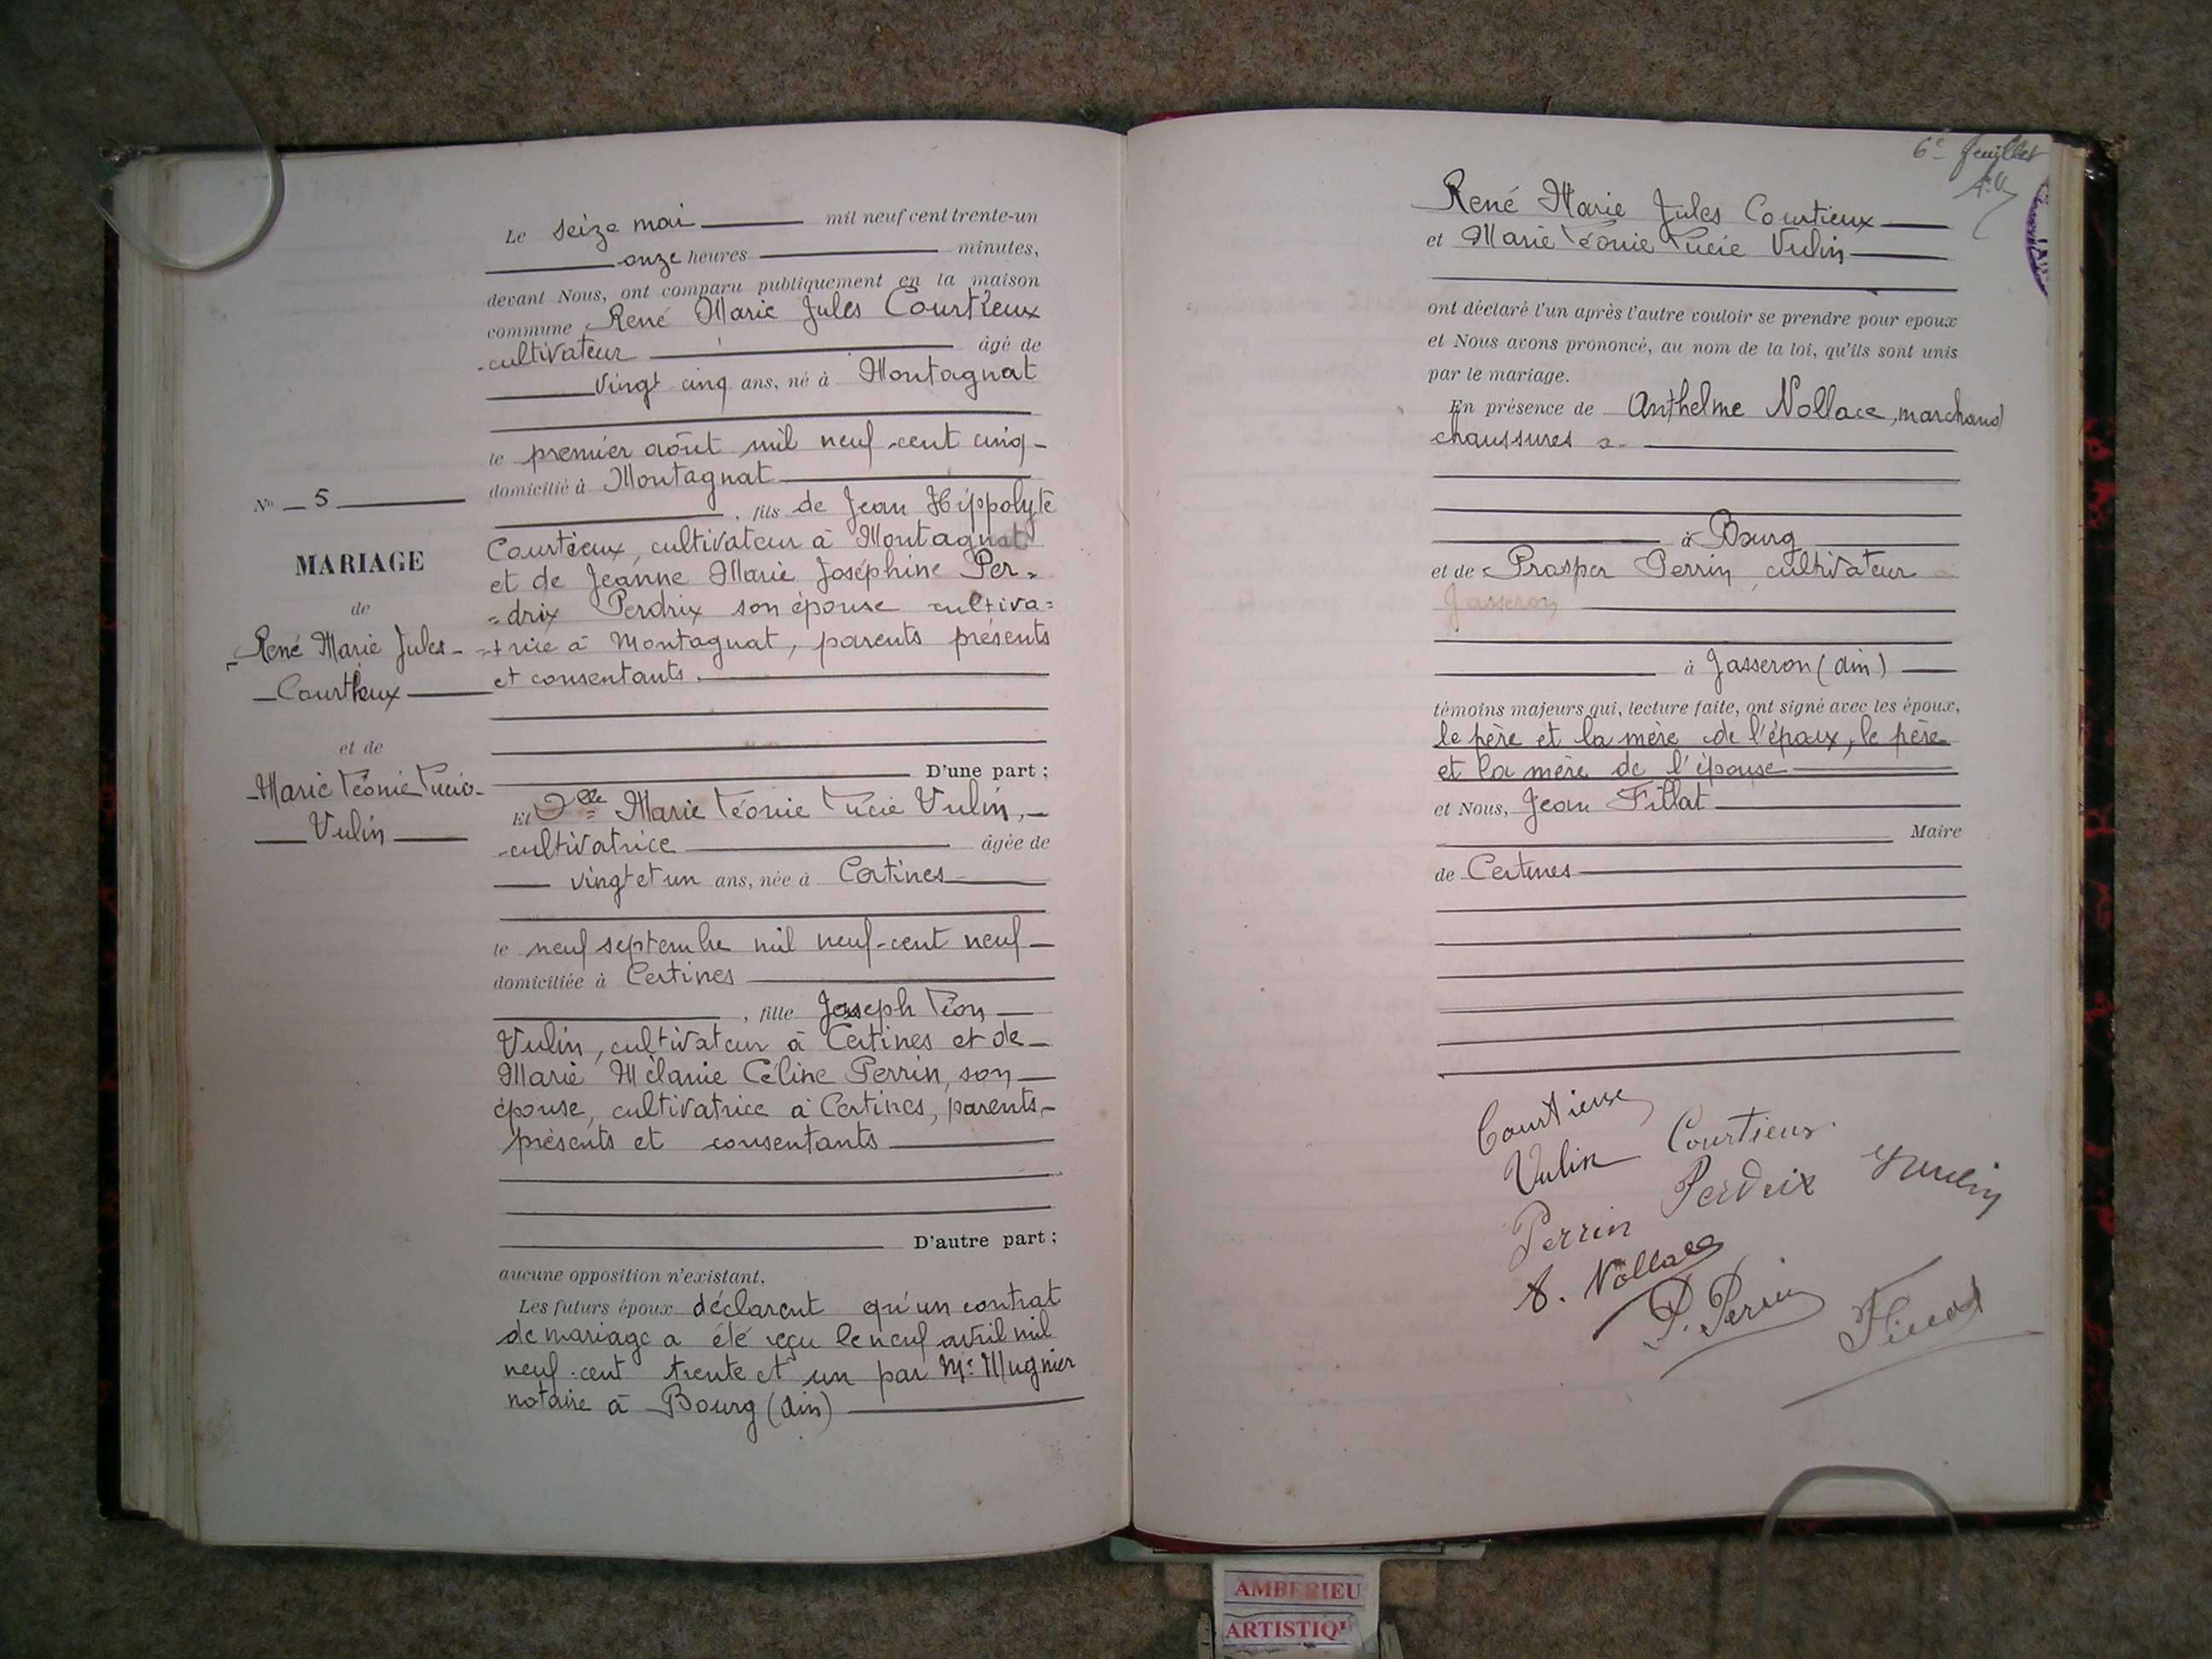 Le seize mai mil neuf cent trente-un
onze heures minutes,
devant Nous, ont comparu publiquement en la maison
commune René Marie Jules Courtieux
cultivateur âgé de
vingt cinq ans, né à Montagnat
le premier août mil neuf cent cinq
domicilié à Montagnat
, fils de Jean Hippolyte
Courtieux, cultivateur à Montagnat
et de Jeanne Marie Joséphine Per=
=drix Perdrix son épouse cultiva=
=trice à Montagnat, parents présents
et consentants.
D'une part ;
Et Dlle Marie Léonie Lucie Vulin,
cultivatrice âgée de
vingt et un ans, née à Certines
le neuf septembre mil neuf-cent neuf
domiciliée à Certines
, fille Joseph Léon
Vulin, cultivateur à Certines et de
Marie Mélanie Céline Perrin, son
épouse, cultivatrice à Certines, parents
présents et consentants
D'autre part ;
aucune opposition n'existant,
Les futurs époux déclarent qu'un contrat
de mariage a été reçu le neuf avril mil
neuf-cent trente et un par Me Mugnier
notaire à Bourg (Ain)
No 5
MARIAGE
de
René Marie Jules
Courtieux
et de
Marie Léonie Lucie
Vulin
6e feuillet
René Marie Jules Courtieux
et Marie Léonie Lucie Vulin
ont déclaré l'un après l'autre vouloir se prendre pour epoux
et Nous avons prononcé, au nom de la loi, qu'ils sont unis
par le mariage.
En présence de Anthelme Nollace, marchand
chaussures à
à Bourg
et de Prosper Perrin, cultivateur à
Jasseron
à Jasseron (Ain)
témoins majeurs qui, lecture faite, ont signé avec les époux,
le père et la mère de l'époux, le père
et la mère de l'épouse
et Nous, Jean Fillat
Maire
de Certines
Courtieux
Vulin Courtieux
Perrin Perdrix Vulin
A. Nollace
P. Perrin
AMBERIEU
ARTISTIQ